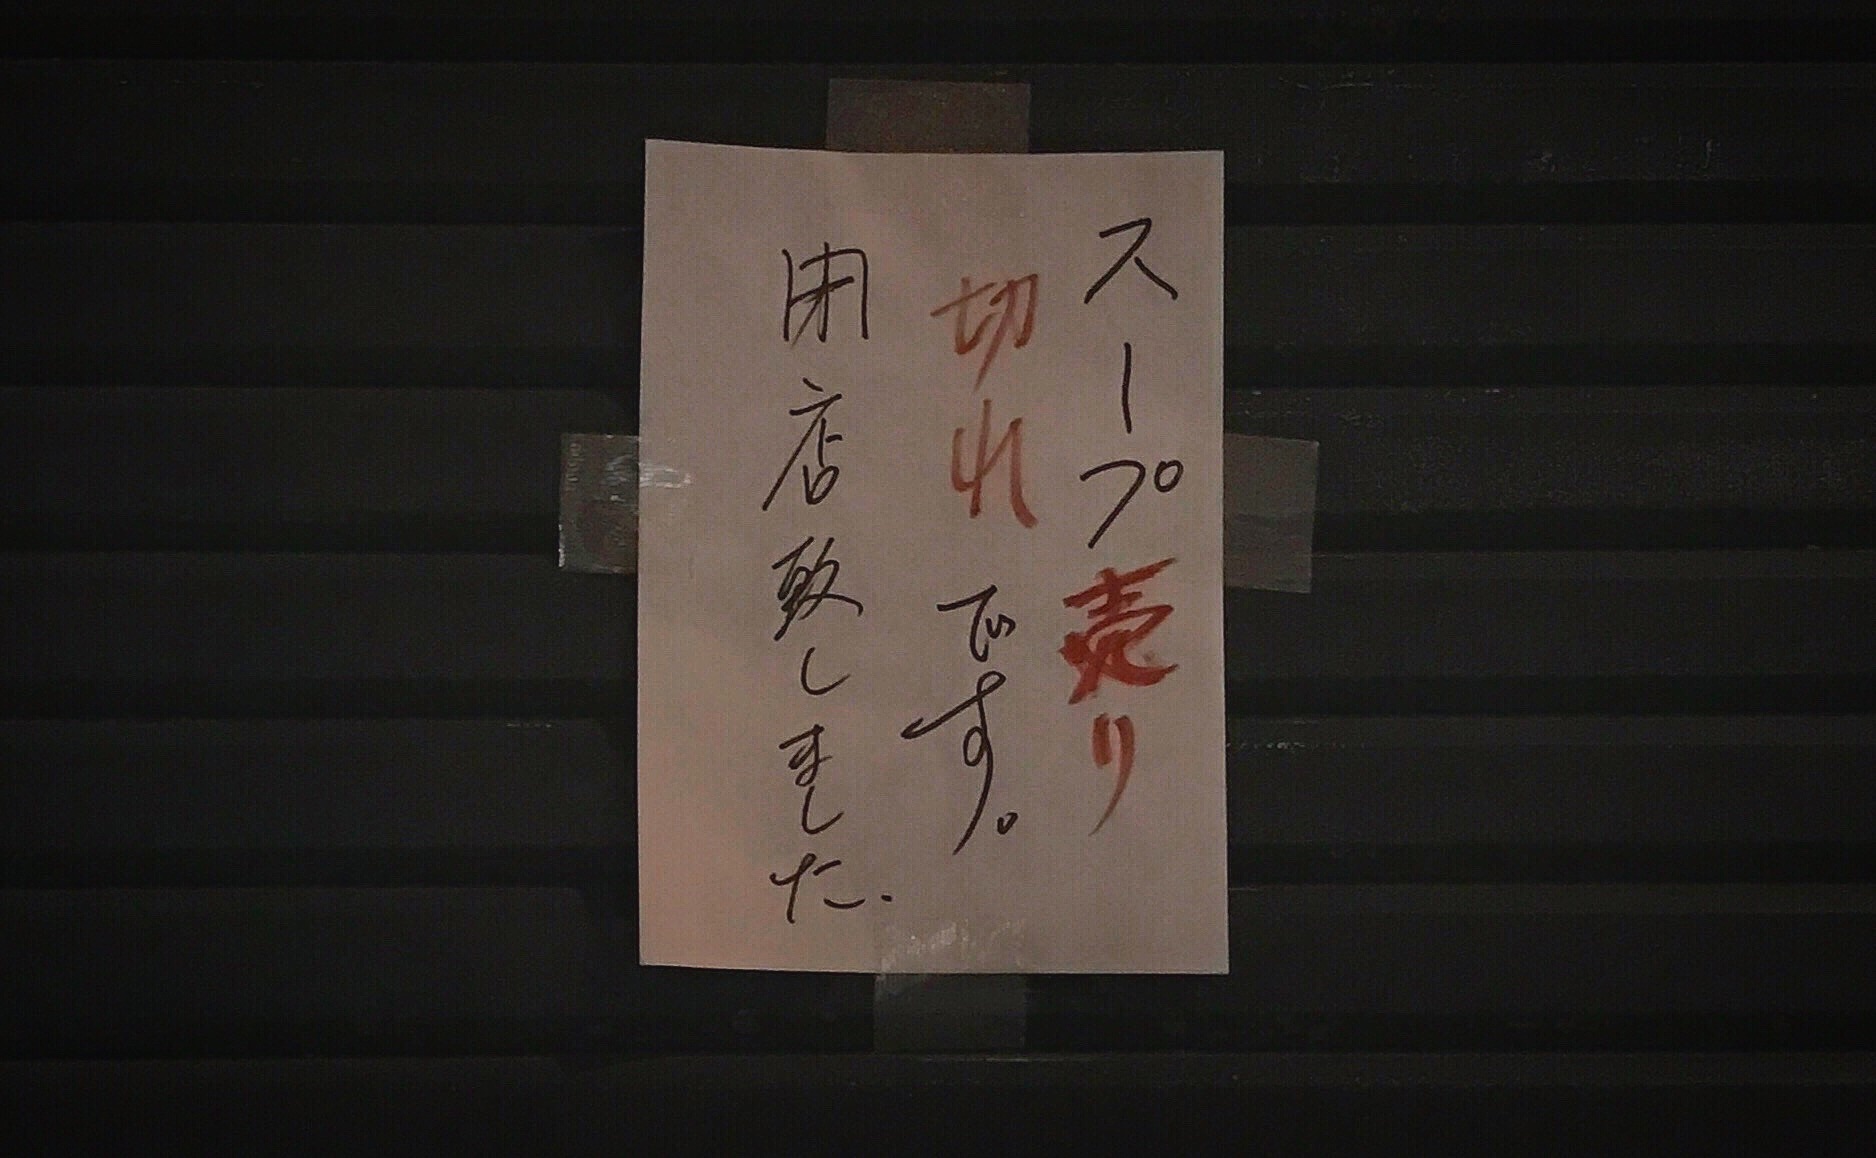 スープ売り
切れです。
閉店致しました.